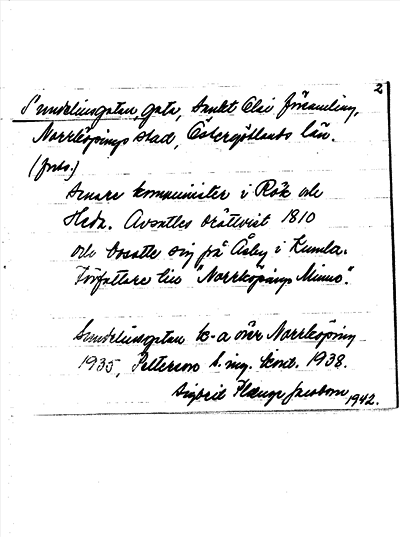 2
Sundeliusgatan, gata, Sankt Olai församling,
Norrköpings stad, Östergötlands län.
(forts.)
Senare komminister i Rök och
Heda. Avsattes orättvist 1810
och bosatte sig på Åsby i Kumla.
Författare till "Norrköpings Minne".
Sundeliusgatan k-a över Norrköping
1935, Petterson s. ing. kont. 1938.
Sigbrit Plænge Jacobson
1942.